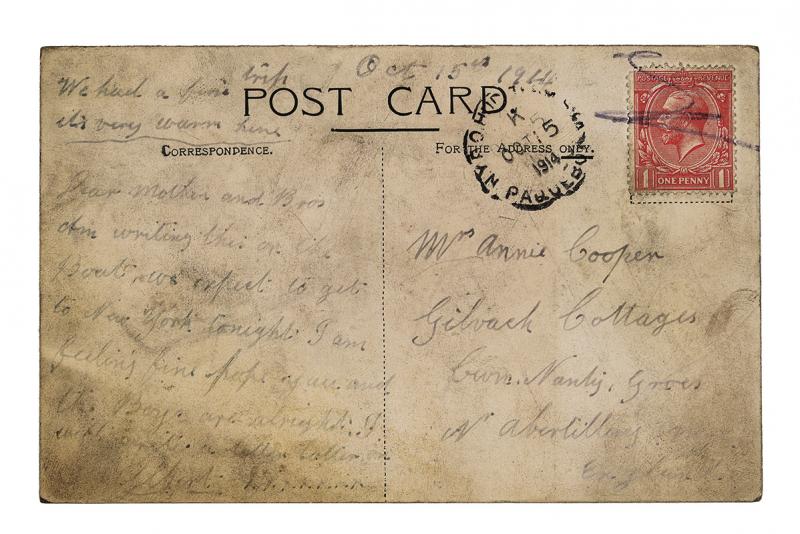 Oct 15th 1914
We had a fine trip
its very warm here
POST CARD
CORRESPONDENCE.
FOR THE ADDRESS ONLY.
OCT 15
1914
PAQUEBO
POSTAGE REVENUE
1 ONE PENNY 1
Dear Mother and Bros
Am writing this on the
Boat, we expect to get
to New York tonight. I am
feeling fine hope you and
the Boys are alright. I
will write a letter later on
Mrs Annie Cooper
Gilvach Cottages
Cwm. Nanty. Groes
Nr Abertillery
England